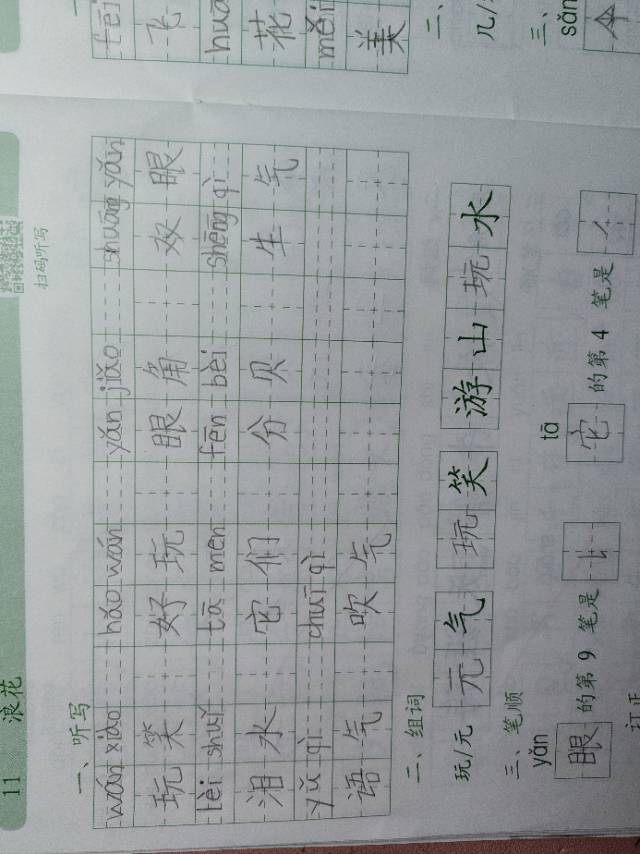 11 浪花
扫码听写
一、听写
wán xiào háo wán yán jiǎo shuāng yǎn
玩笑 好玩 眼角 双眼
lèi shuǐ tā men fēn bèi shēng qì
泪水 它们 分贝 生气
yǔ qì chuī qì
语气 吹气
二、组词
玩/元 元气 玩笑 游山玩水
三、笔顺
yǎn tā
眼 的第 9 笔是 它 的第 4 笔是
订正
fēi
飞
huā
花
měi
美
二、
几/
三、
sǎn
伞